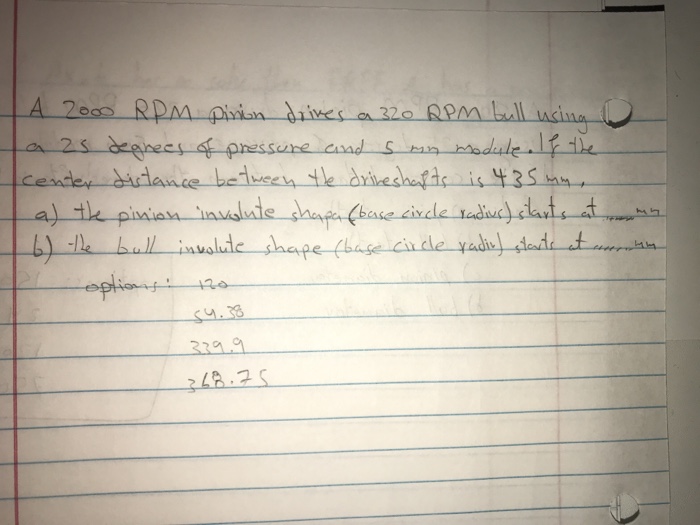 A 2000 RPM pinion drives a 320 RPM bull using
a 25 degrees of pressure and 5 mn module. If the
center distance between the driveshafts is 435 mm,
a) the pinion involute shape (base circle radius) starts at ...... mm
b) the bull involute shape (base circle radius) starts at ...... mm
options: 120
54.38
339.9
368.75